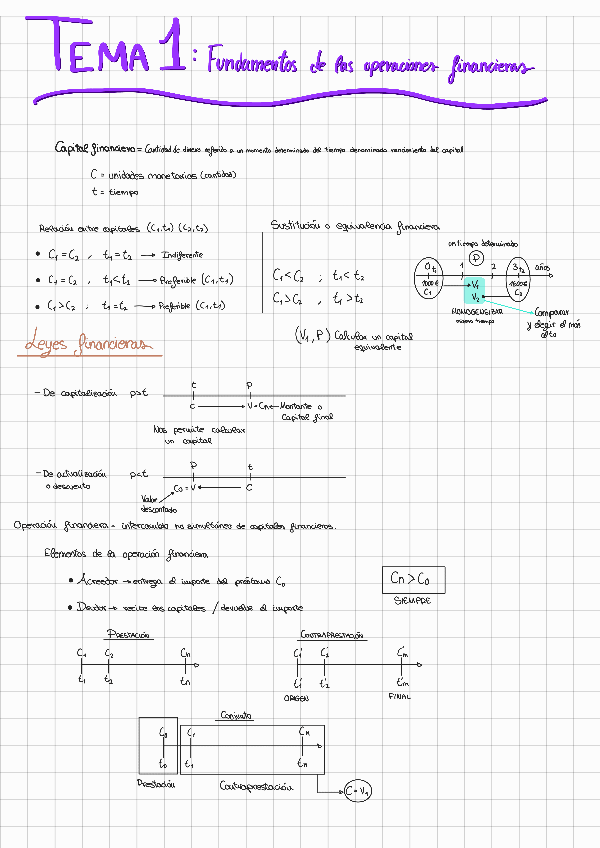 TEMA 1: Fundamentos de las operaciones financieras
Capital financiero = Cantidad de dinero referido a un momento determinado del tiempo denominado vencimiento del capital
C = unidades monetarias (cantidad)
t = tiempo
Relación entre capitales (C₁,t₁) (C₂,t₂)
• C₁ = C₂ , t₁ = t₂ → Indiferente
• C₁ = C₂ , t₁ < t₂ → Preferible (C₁,t₁)
• C₁ > C₂ , t₁ = t₂ → Preferible (C₁,t₁)
Sustitución o equivalencia financiera
C₁ < C₂ ; t₁ < t₂
C₁ > C₂ , t₁ > t₂
(V₁, P) Calcular un capital
equivalente
un tiempo determinado
P
0 t₁ 1 2 3 t₂ años
1000€ V₁ 1500€
C₁ V₂ C₂
HOMOGENEIZAR
mismo tiempo
Comparar
y elegir el más
alto
Leyes financieras
- De capitalización p>t
t p
C → V = Cn ← Montante o
Capital final
Nos permite calcular
un capital
- De actualización
o descuento
p<t
P t
C₀ = V ← C
Valor
descontado
Operación financiera - intercambio no simultáneo de capitales financieros.
Elementos de la operación financiera
• Acreedor → entrega el importe del préstamo C₀
• Deudor → recibe los capitales / devuelve el importe
Cn > C₀
SIEMPRE
PRESTACIÓN
C₁ C₂ Cn
t₁ t₂ tn
CONTRAPRESTACIÓN
C'₁ C'₂ C'm
t'₁ t'₂ t'm
ORIGEN FINAL
Conjunto
C₀ C₁ Cn
t₀ t₁ tn
Prestación Contraprestación
C = V₁